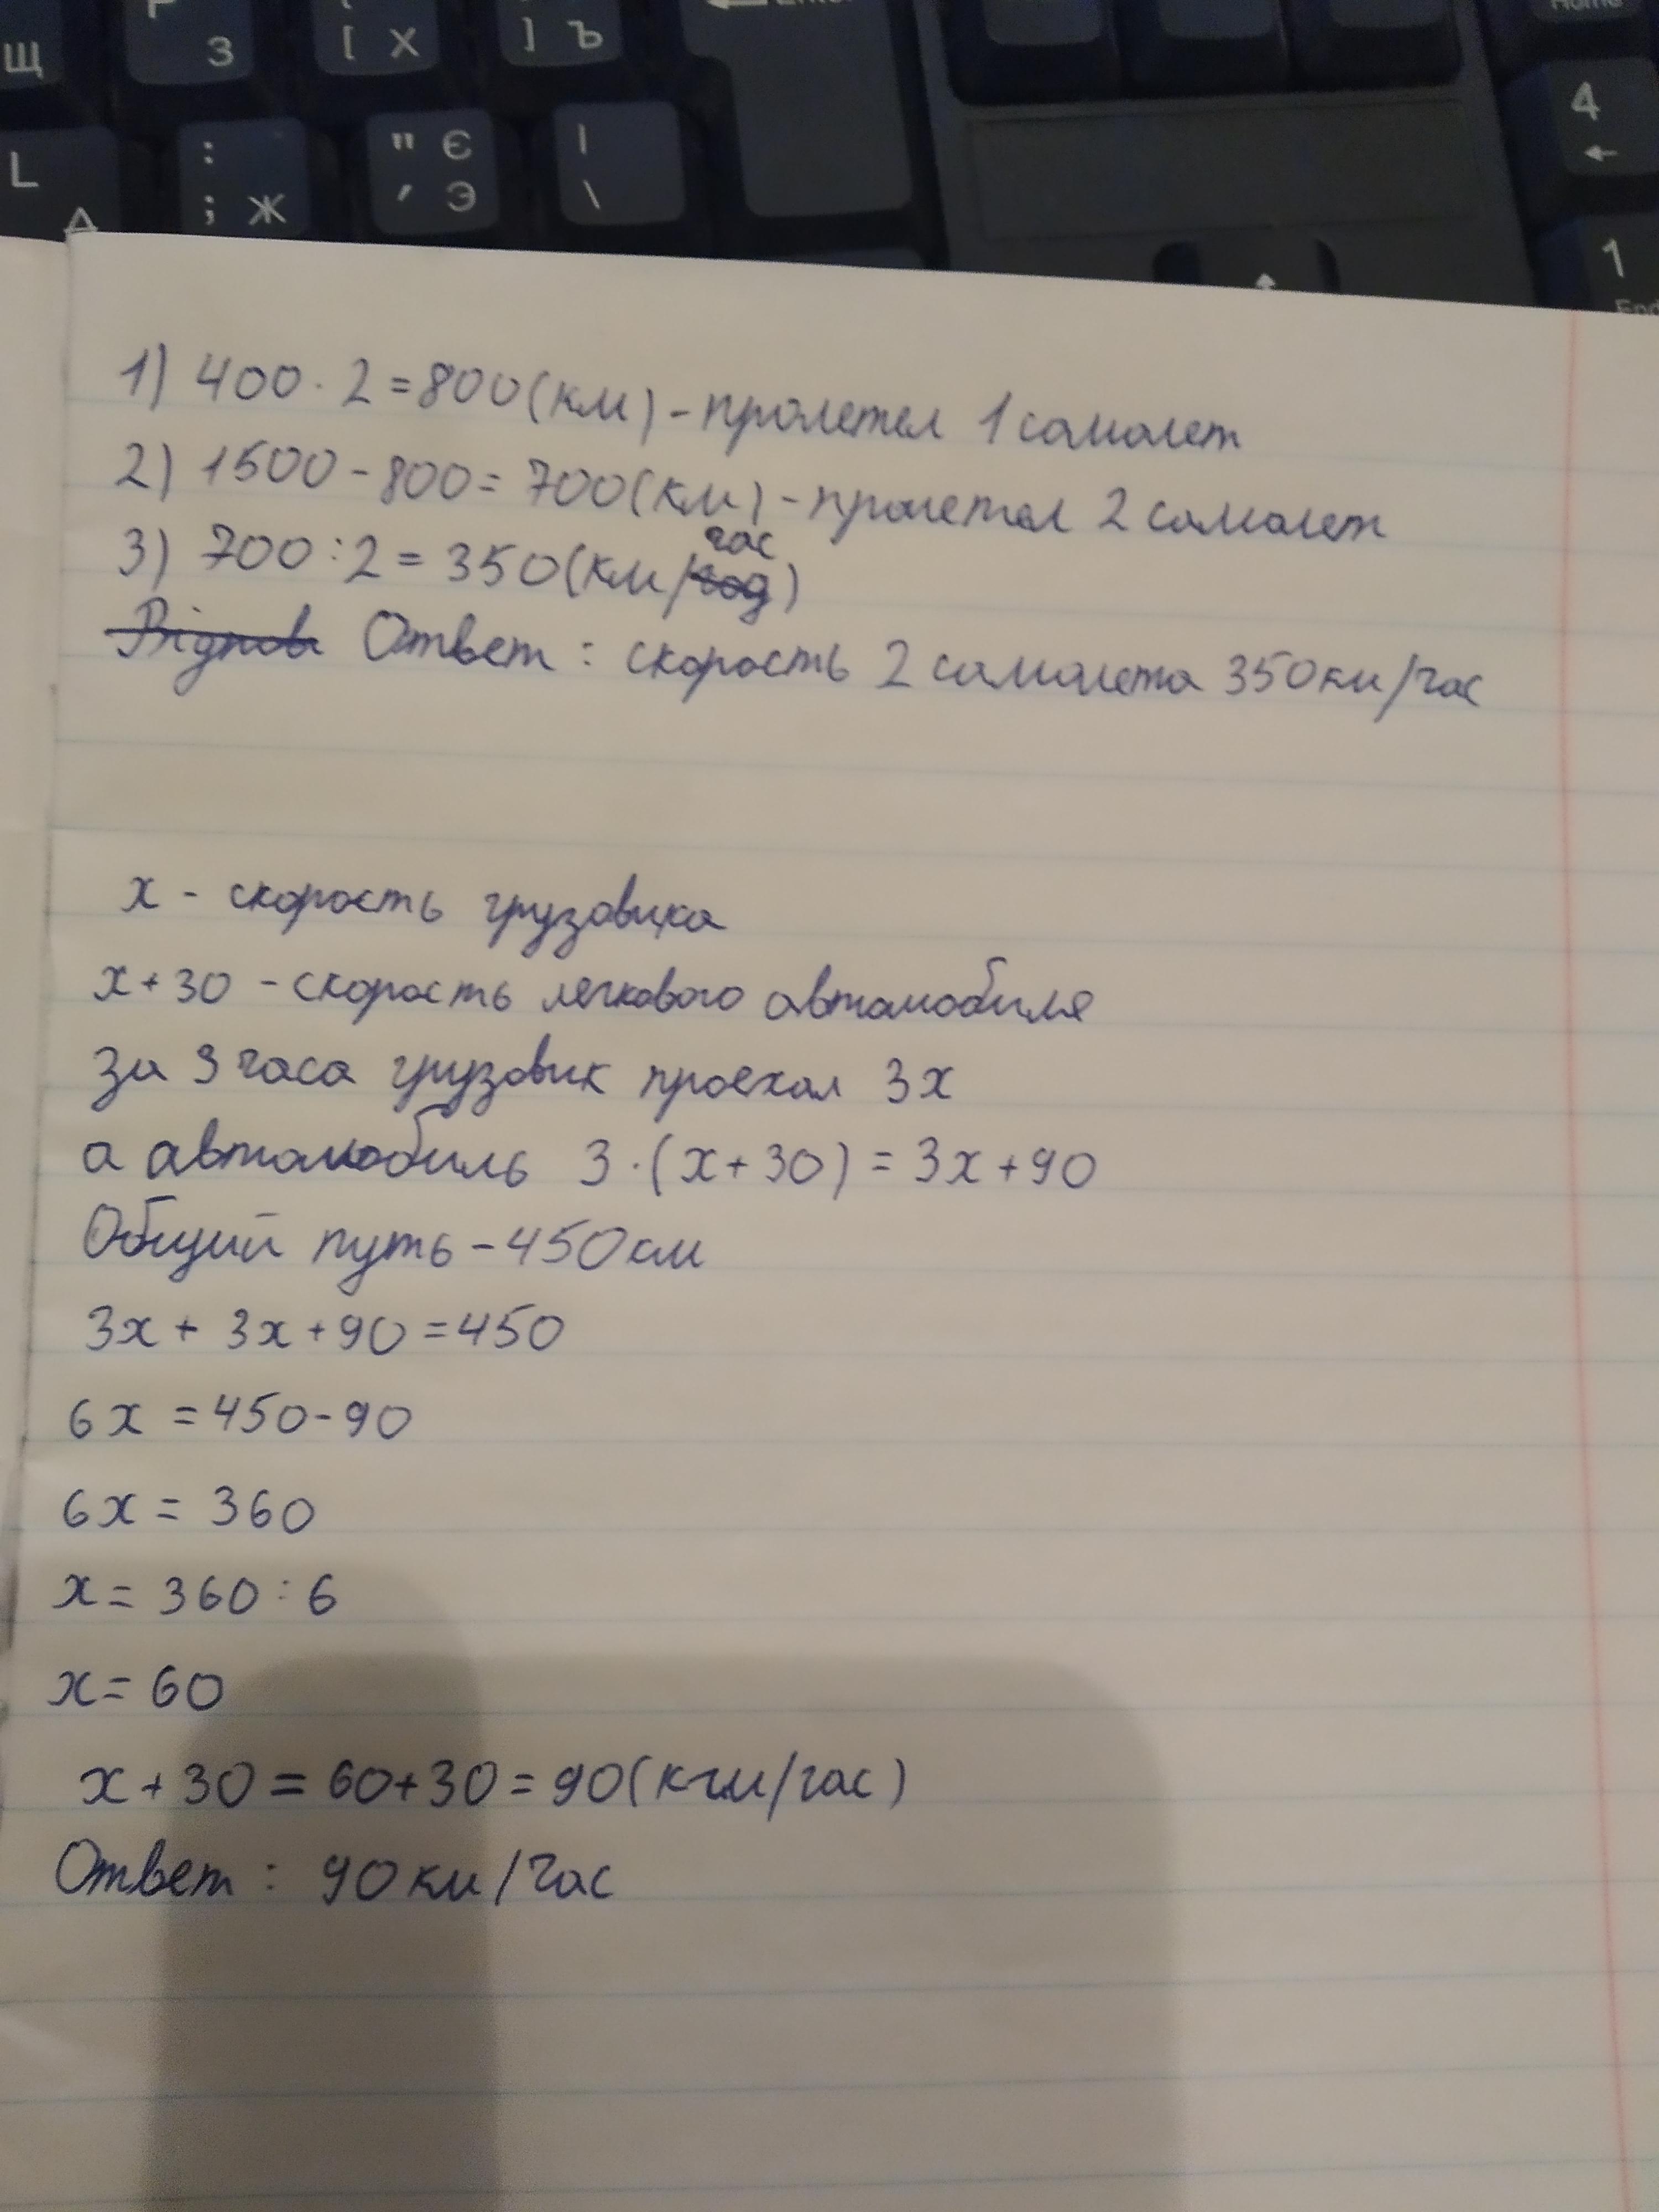 Г Enter Home
Щ З [ Х ] Ъ
4
L Д : ; Ж " Є ' Э | \ ←
1
End
1) 400 · 2 = 800 (км) - пролетел 1 самолет
2) 1500 - 800 = 700 (км) - пролетел 2 самолет
3) 700 : 2 = 350 (км/год час)
Відпов Ответ : скорость 2 самолета 350 км/час
x - скорость грузовика
x + 30 - скорость легкового автомобиля
за 3 часа грузовик проехал 3x
а автомобиль 3 · (x + 30) = 3x + 90
Общий путь - 450 км
3x + 3x + 90 = 450
6x = 450 - 90
6x = 360
x = 360 : 6
x = 60
x + 30 = 60 + 30 = 90 (км/час)
Ответ : 90 км/час